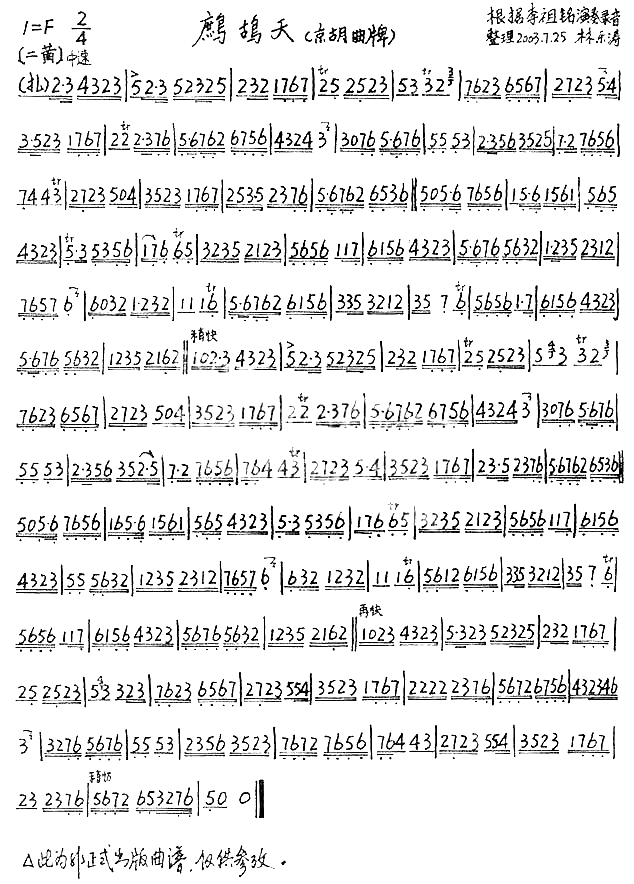 1=F 2/4 鹧鸪天（京胡曲牌） 根据李祖铭演奏录音
〔二黄〕中速 整理2003.7.25 林乐涛
(扎)2·3 4323|52·3 52325|232 1767|25 2523|53 32|7623 6567|2723 54|
3·523 1767|22 2·376|5·6762 6756|4324 3|3076 5·676|55 53|2·356 3525|7·2 7656|
74 43|2723 504|3523 1767|2535 2376|5·6762 6536‖505·6 7656|15·6 1561|565
4323|5·3 5356|176 65|3235 2123|5656 117|6156 4323|5·676 5632|1·235 2312|
7657 6|6032 1·232|11 16|5·6762 6156|335 3212|35 7 6|5656 1·7|6156 4323|
稍快
5·676 5632|1235 2162‖102·3 4323|52·3 52325|232 1767|25 2523|5 3 32|
7623 6567|2723 504|3523 1767|22 2·376|5·6762 6756|4324 3|3076 5·676|
55 53|2·356 352·5|7·2 7656|764 43|2723 5·4|3523 1767|23·5 2376|5·6762 6536‖
505·6 7656|165·6 1561|565 4323|5·3 5356|176 65|3235 2123|5656 117|6156
4323|55 5632|1235 2312|7657 6|632 1232|11 16|5612 6156|335 3212|35 7 6|
再快
5656 117|6156 4323|5676 5632|1235 2162‖1023 4323|5·323 52325|232 1767|
25 2523|53 323|7623 6567|2723 554|3523 1767|2222 2376|5672 6756|432346
3|3276 5676|55 53|2356 3523|7672 7656|764 43|2723 554|3523 1767|
23 2376|5672 653276|50 0‖
△此为非正式出版曲谱，仅供参考。